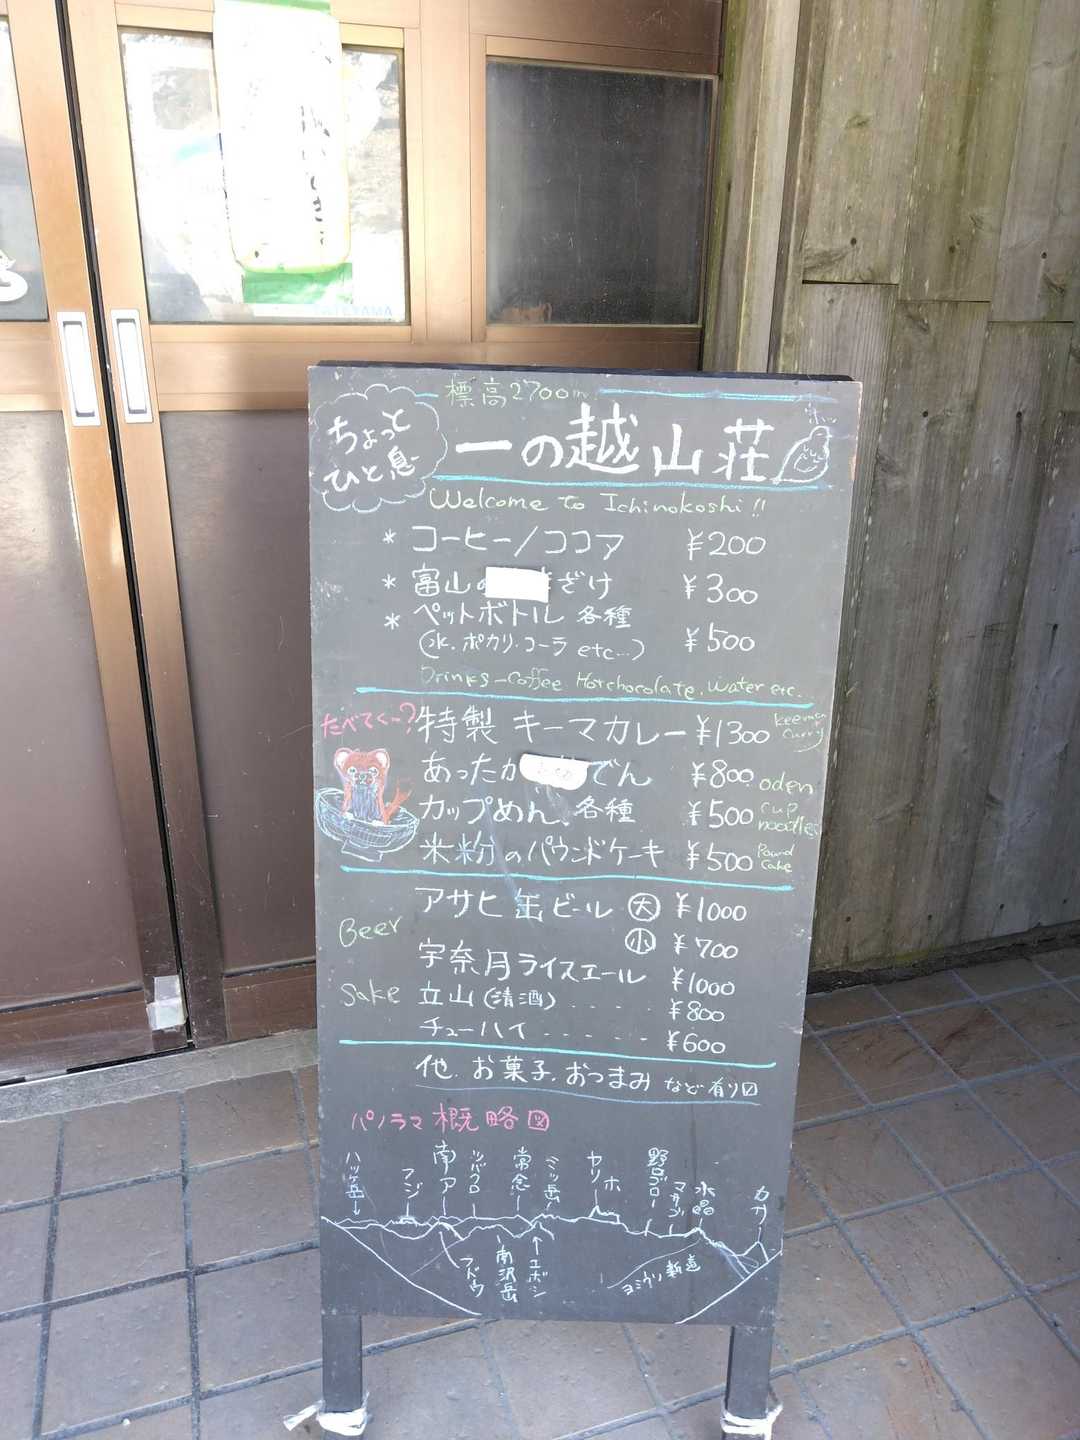 標高2700m
ちょっと
ひと息
一の越山荘
Welcome to Ichinokoshi!!
* コーヒー/ココア ¥200
* 富山の ざけ ¥300
* ペットボトル 各種 ¥500
(水.ポカリ.コーラ etc...)
Drinks-Coffee Hotchocolate. water etc.
たべてく〜?
特製 キーマカレー ¥1300 keema curry
あったか でん ¥800 oden
カップめん、各種 ¥500 cup noodles
米粉のパウンドケーキ ¥500 Pound Cake
Beer
アサヒ缶ビール 大 ¥1000
小 ¥700
宇奈月ライスエール ¥1000
Sake 立山(清酒) ..... ¥800
チューハイ ...... ¥600
他.お菓子.おつまみ など有り〼
パノラマ概略図
八ヶ岳
フジ
南ア
ツバクロ
常念
三ツ岳
ヤリ
ホ
野口ゴロー
マサゴ
水晶
カサ
フドウ
南沢岳
エボシ
ヨミウリ新道